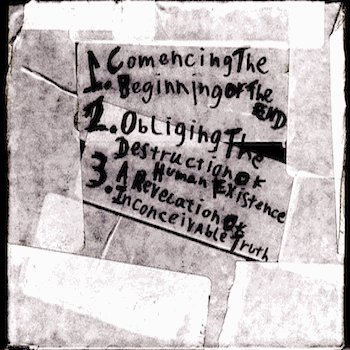 1. Comencing The
Beginning of The
END
2. Obliging The
Destruction of
Human Existence
3. A Revelation of
Inconceivable Truth